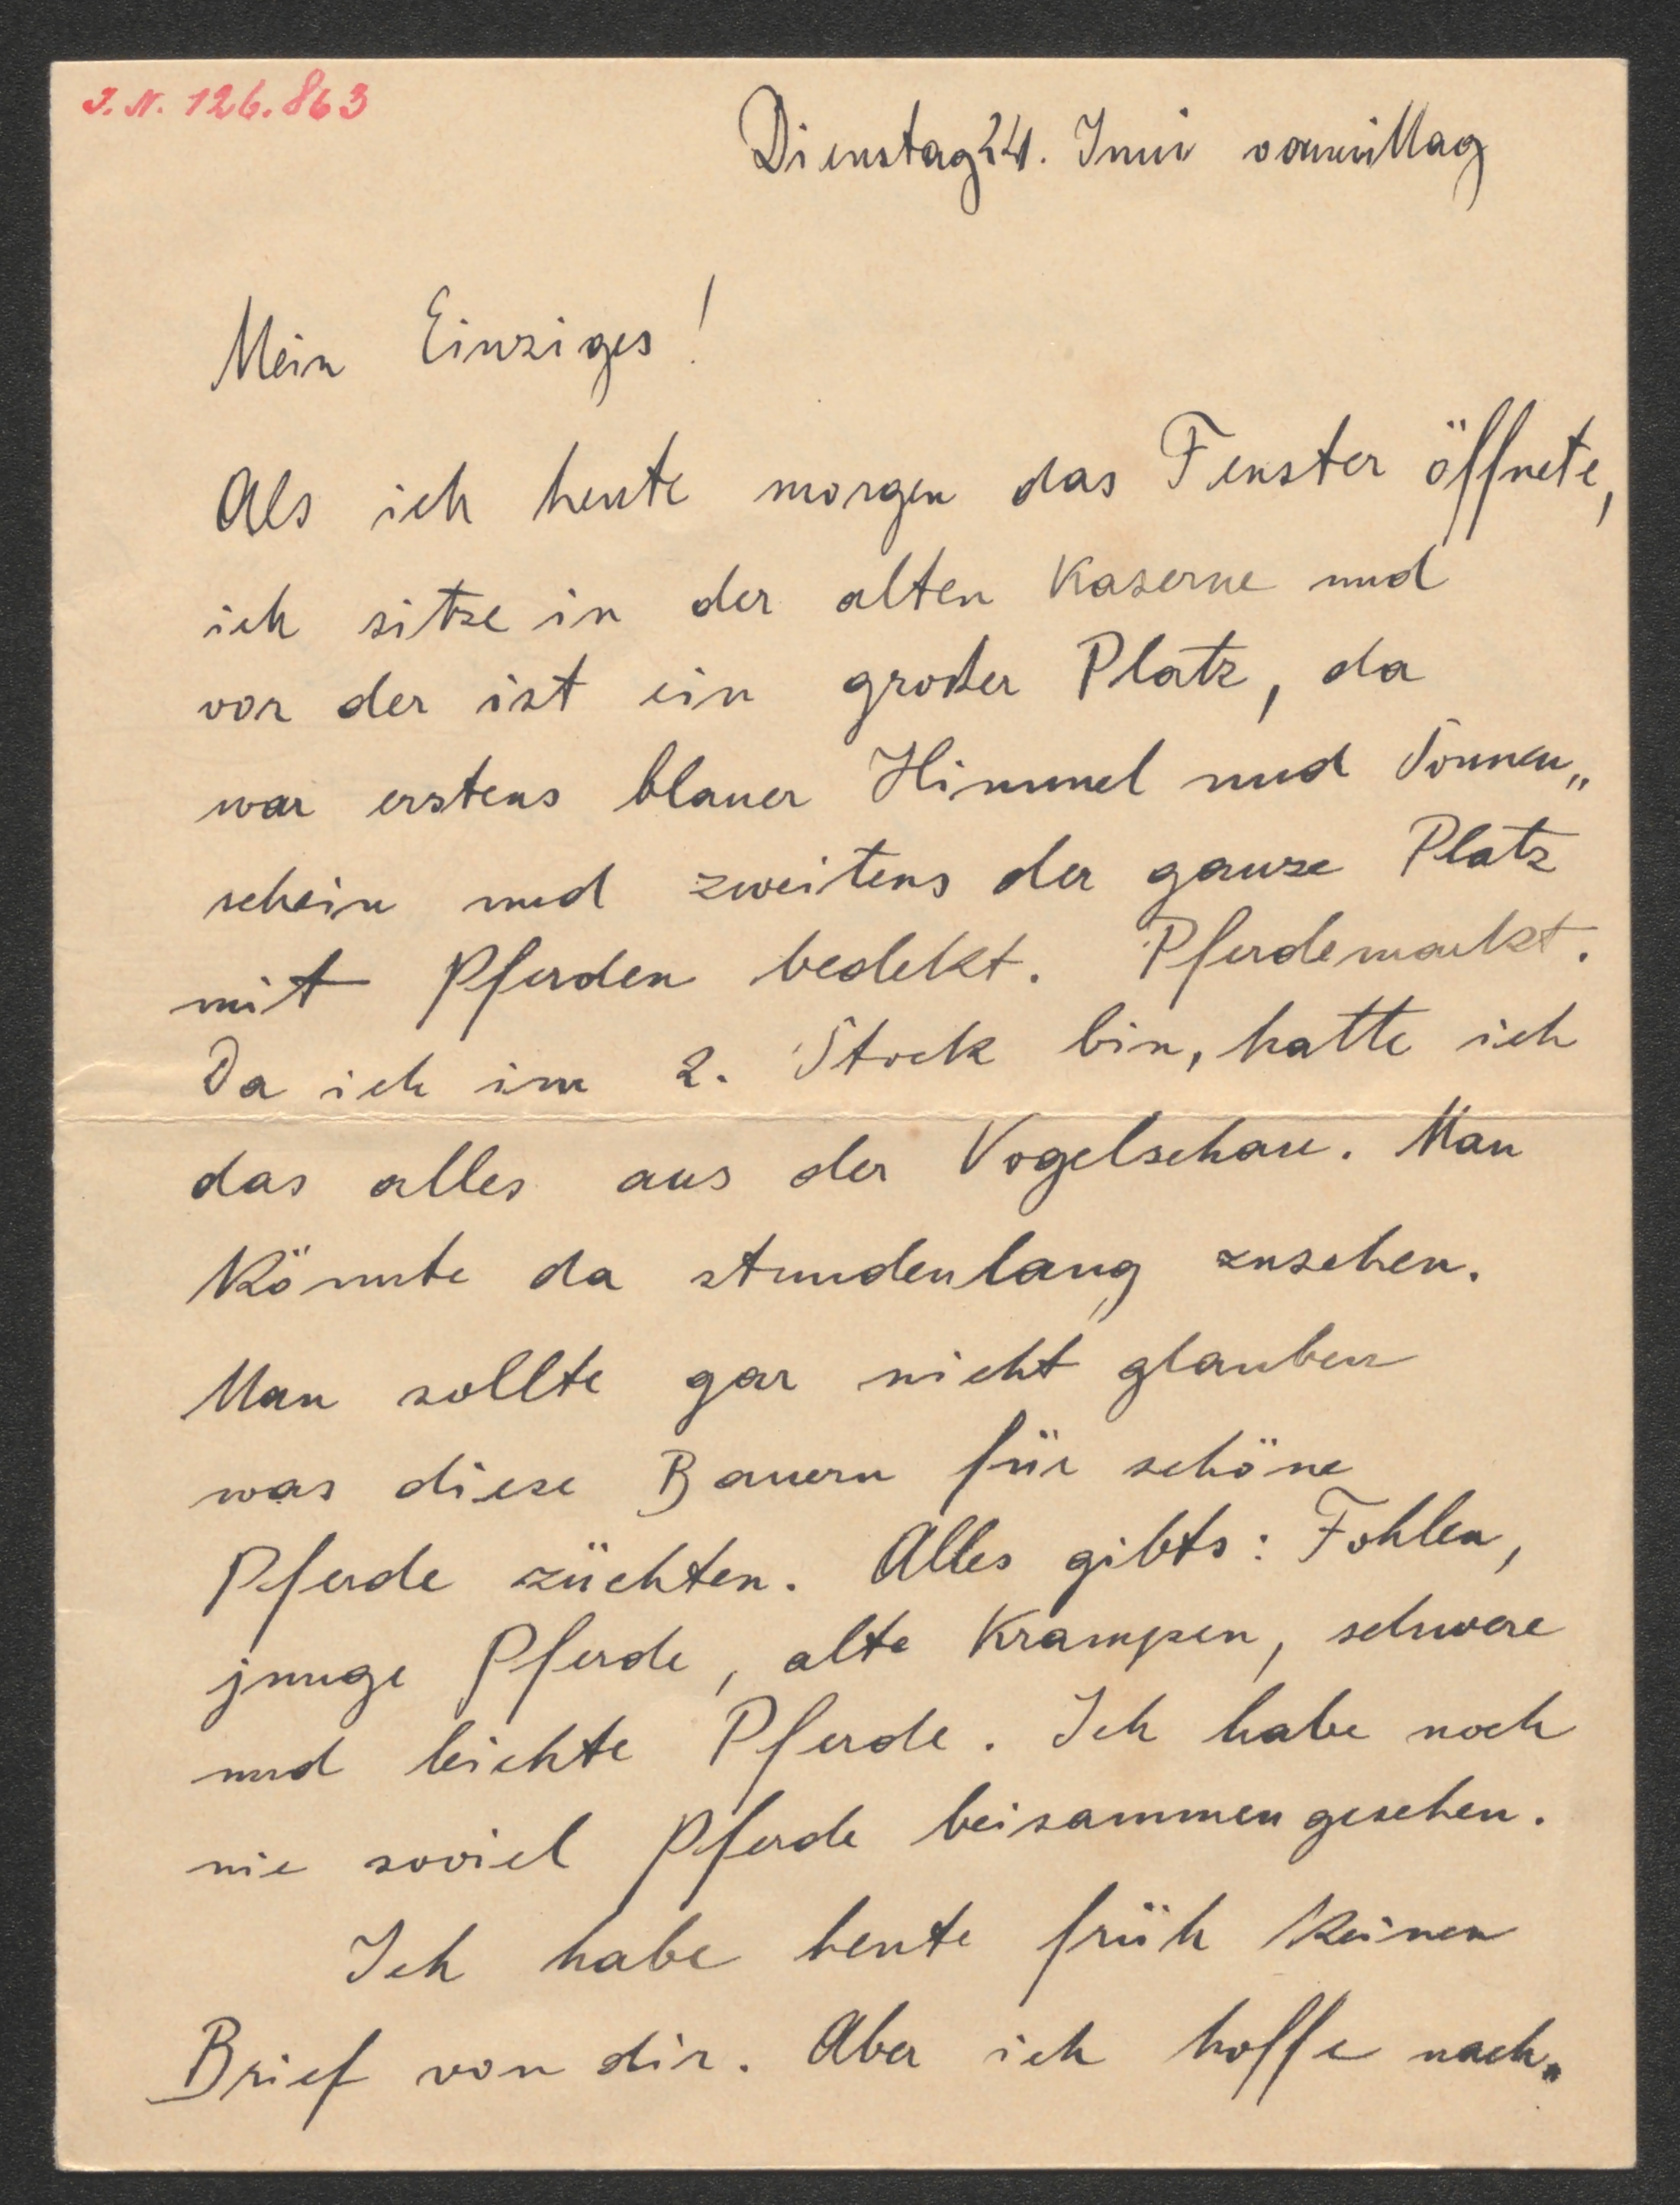 J.N. 126.863
Dienstag 24. Juni vormittag
Mein Einziges!
Als ich heute morgen das Fenster öffnete,
ich sitze in der alten Kaserne und
vor der ist ein großer Platz, da
war erstens blauer Himmel und Sonnen„
schein und zweitens der ganze Platz
mit Pferden bedekt. Pferdemarkt.
Da ich im 2. Stock bin, hatte ich
das alles aus der Vogelschau. Man
könnte da stundenlang zusehen.
Man sollte gar nicht glauben
was diese Bauern für schöne
Pferde züchten. Alles gibts: Fohlen,
junge Pferde, alte Krampen, schwere
und leichte Pferde. Ich habe noch
nie soviel Pferde beisammen gesehen.
Ich habe heute früh keinen
Brief von dir. Aber ich hoffe nach„